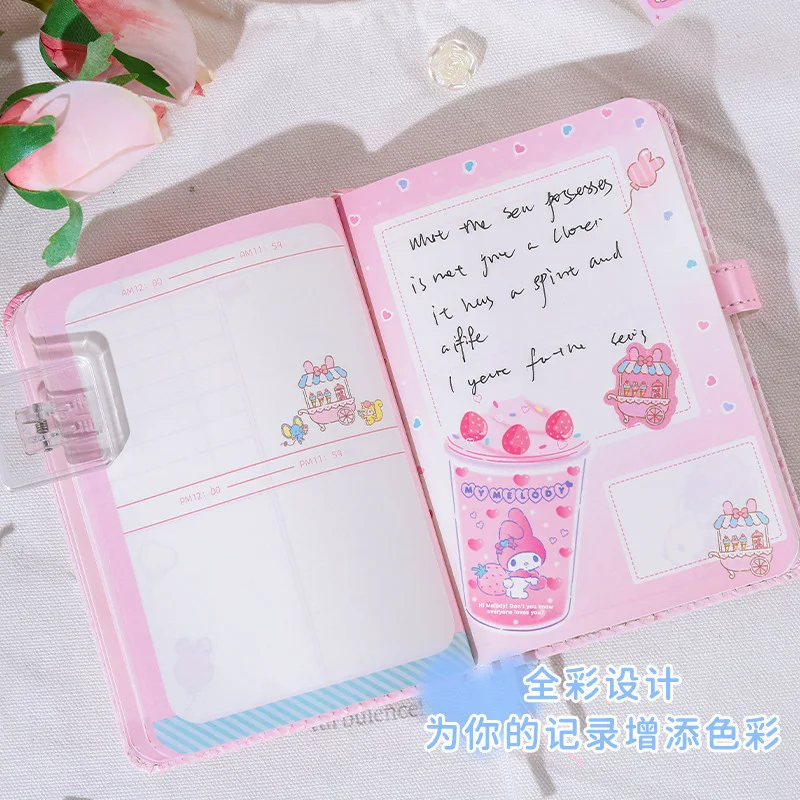 AM12：00 —— AM11：59
PM12：00 —— PM11：59
what the sea possesses
is not give a lover
it has a spirit and
a life
I yearn for the sea's
MY MELODY
Hi Melody! Don't you know
everyone loves you?
turbulence
全彩设计
为你的记录增添色彩